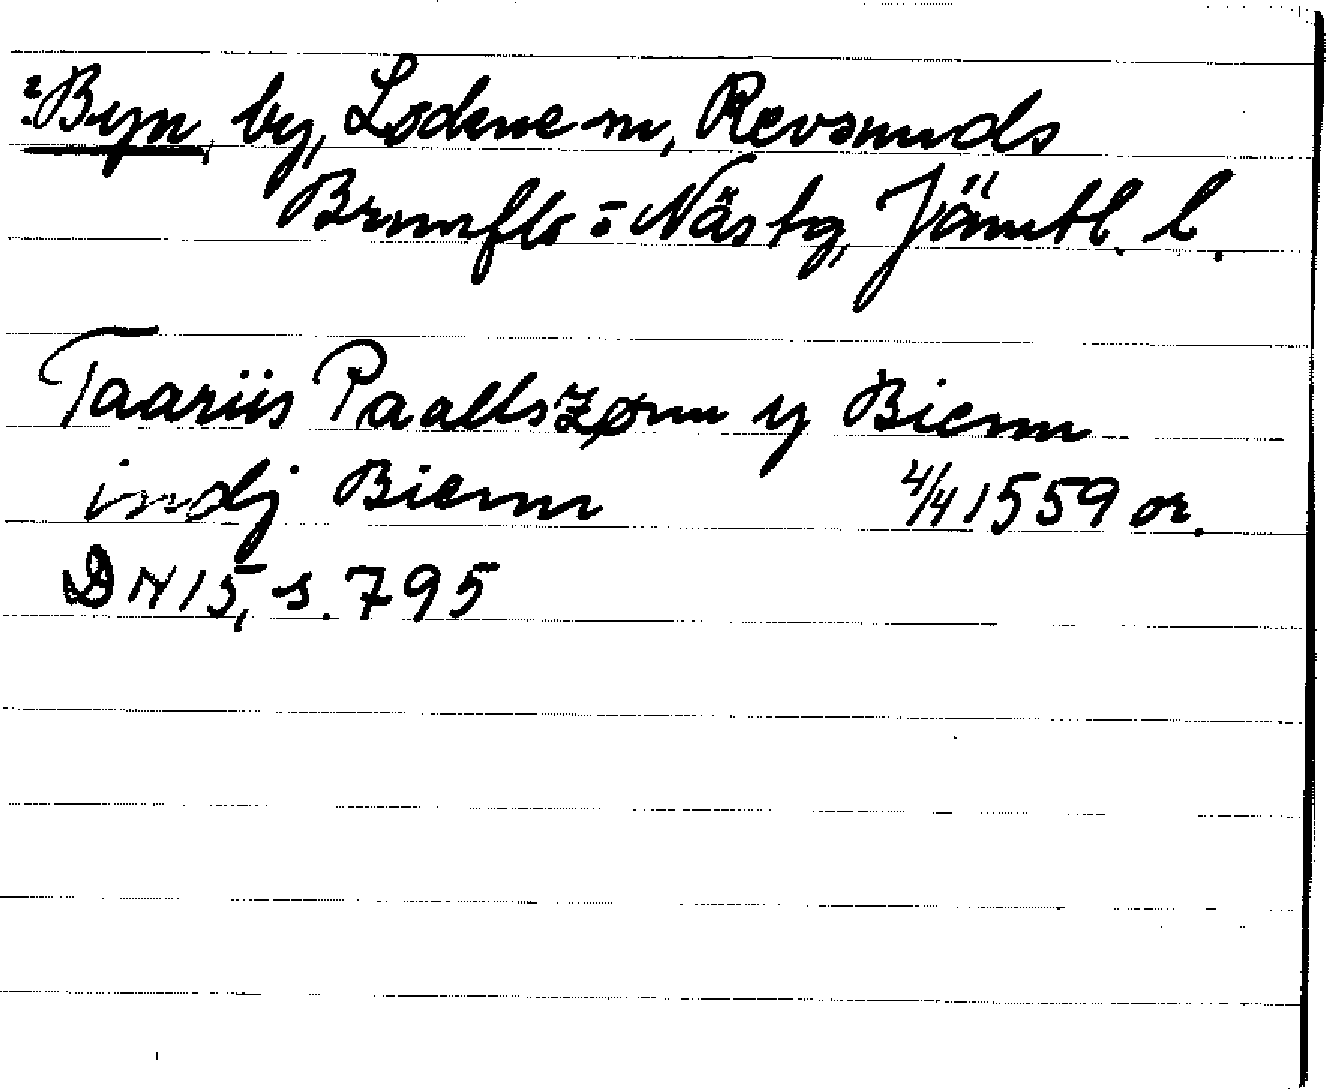 ?Byn, by, Lockne sn, Revsunds
Brunflo o Näs tg, Jämtl. l.
Taariis Paallszønn y Bienn
indj Bienn 4/4 1559 or.
DN 15, s. 795